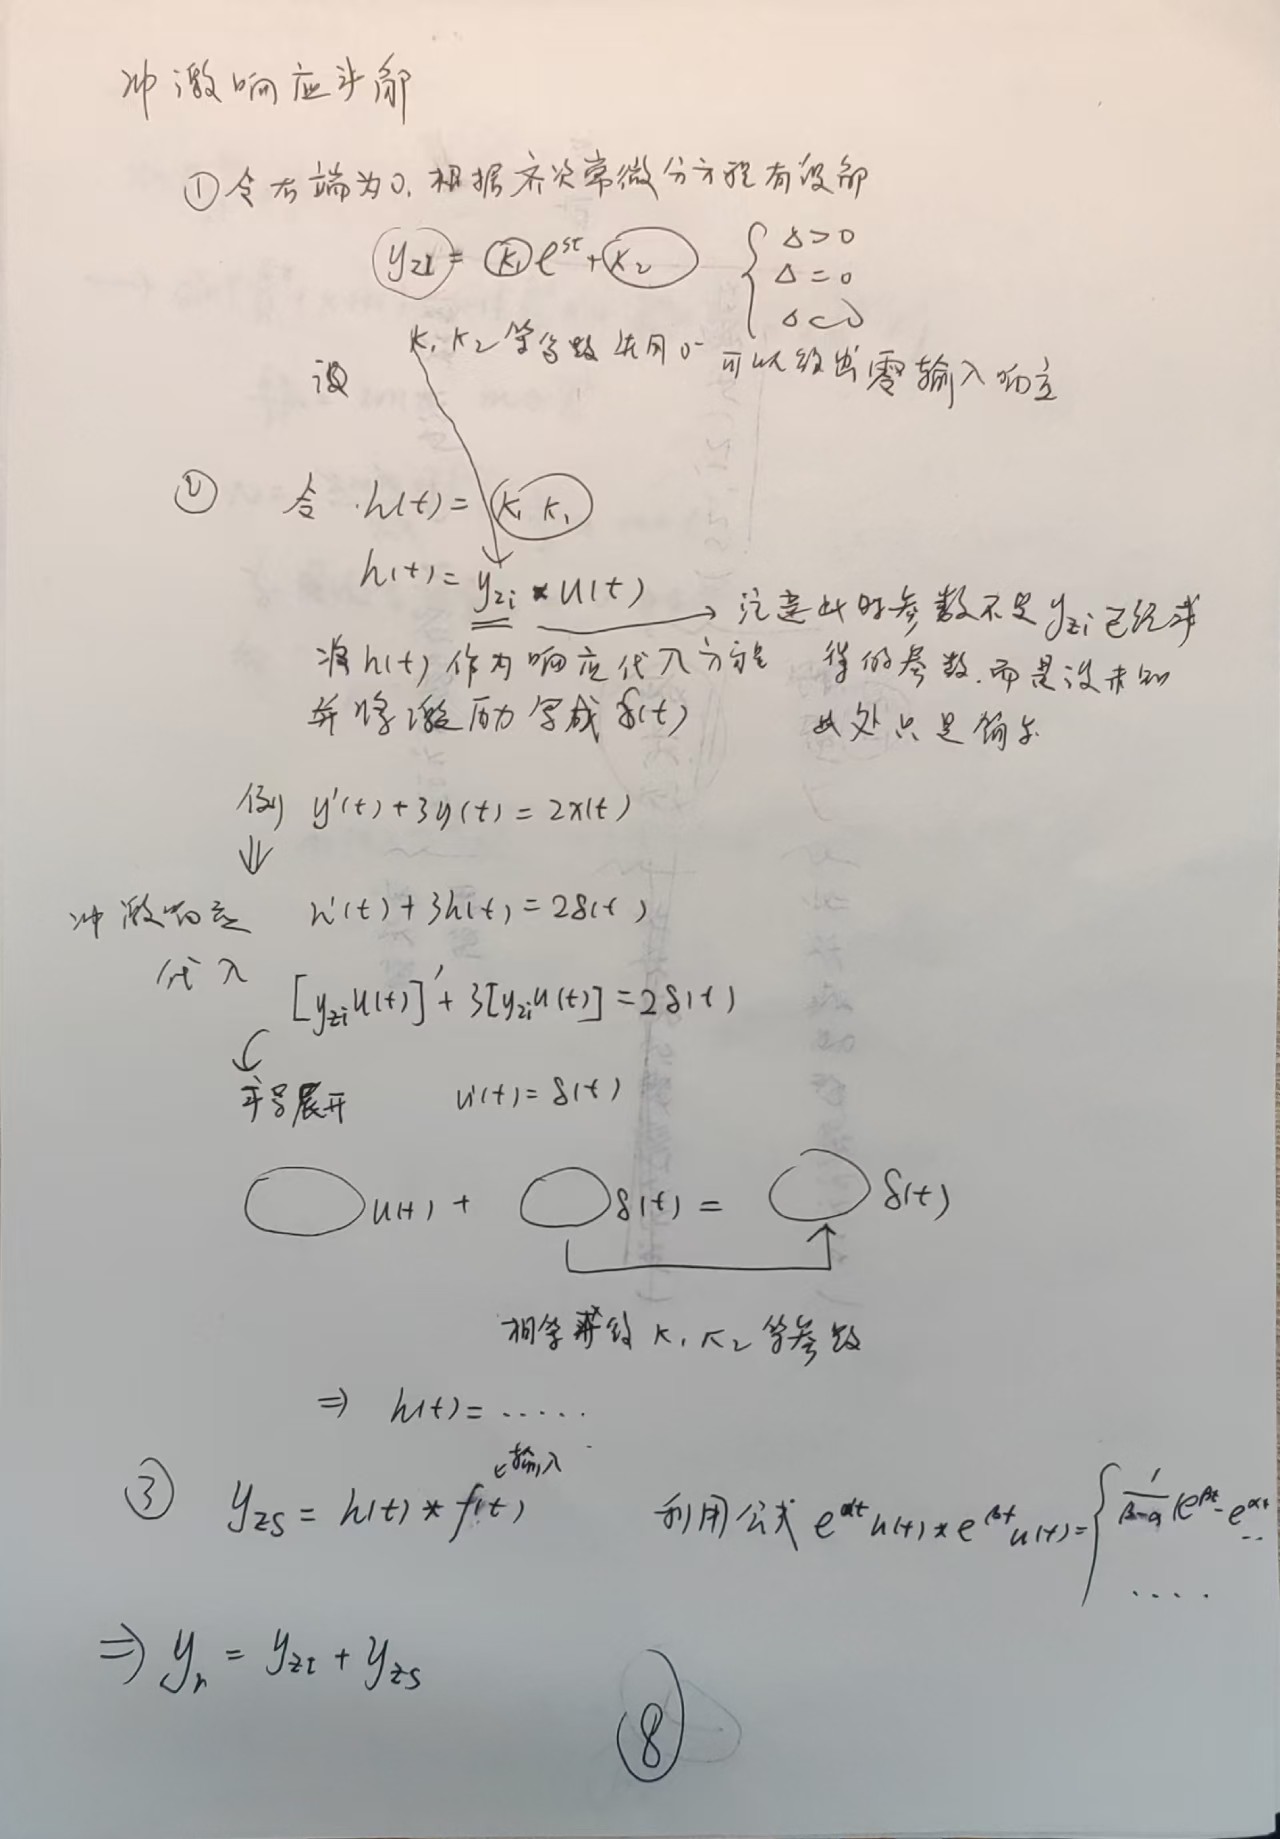 冲激响应求解
① 令右端为0, 根据齐次常微分方程有设解
y_{zi} = k₁ e^{st} + k₂ { Δ>0 Δ=0 Δ<0
设 k₁ k₂ 等参数 使用 0⁻ 可以给出零输入响应
② 令 h(t) = k₁ k₁
h(t) = y_{zi} * u(t) → 注意此时参数不是 y_{zi} 已经求
将 h(t) 作为响应代入方程 得的参数, 而是设未知
并将激励写成 δ(t) 此处只是偷步
例 y'(t) + 3y(t) = 2x(t)
⇓
冲激响应 h'(t) + 3h(t) = 2δ(t)
代入 [y_{zi}u(t)]' + 3[y_{zi}u(t)] = 2δ(t)
求导展开 u'(t) = δ(t)
u(t) + δ(t) = δ(t)
相等 k₁ k₂ 等参数
⇒ h(t) = ......
输入
③ y_{zs} = h(t) * f(t) 利用公式 e^{αt}u(t) * e^{βt}u(t) = { 1/(β-α) (e^{βt} - e^{αt} .. ....
⇒ y_n = y_{zi} + y_{zs}
⑧